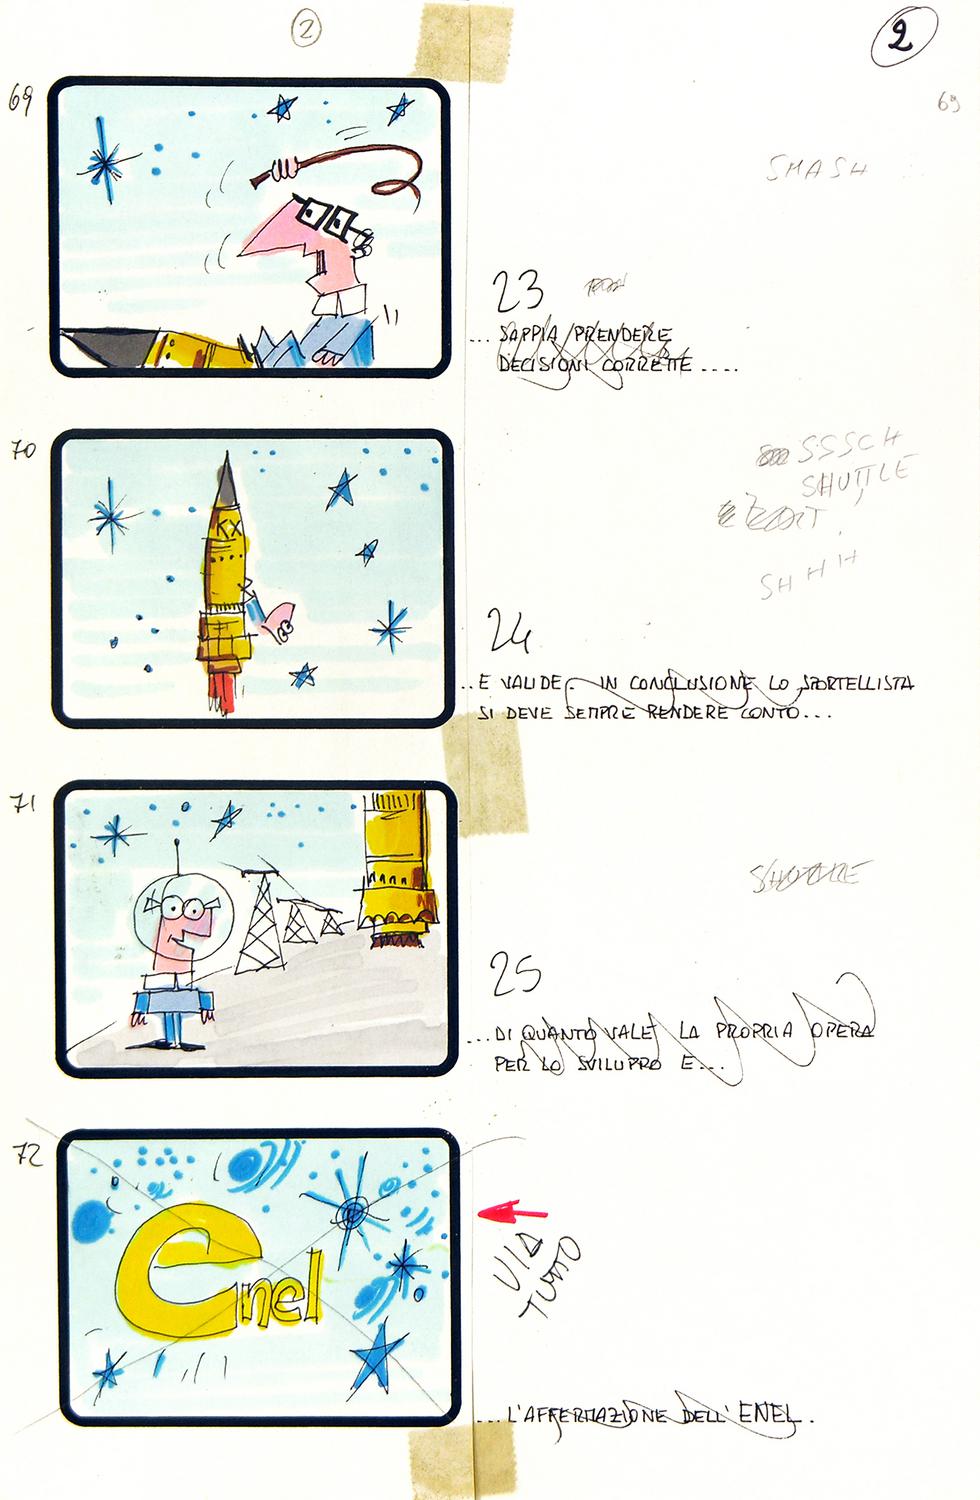 2
2
69
69
SMASH
23
... SAPPIA PRENDERE
DECISIONI CORRETTE ....
70
SSSCH
SHUTTLE
SHHH
KX
24
.. E VALIDE. IN CONCLUSIONE LO SPORTELLISTA
SI DEVE SEMPRE RENDERE CONTO...
71
25
...DI QUANTO VALE LA PROPRIA OPERA
PER LO SVILUPPO E...
72
enel
VIA
TUTTO
... L'AFFERMAZIONE DELL' ENEL.